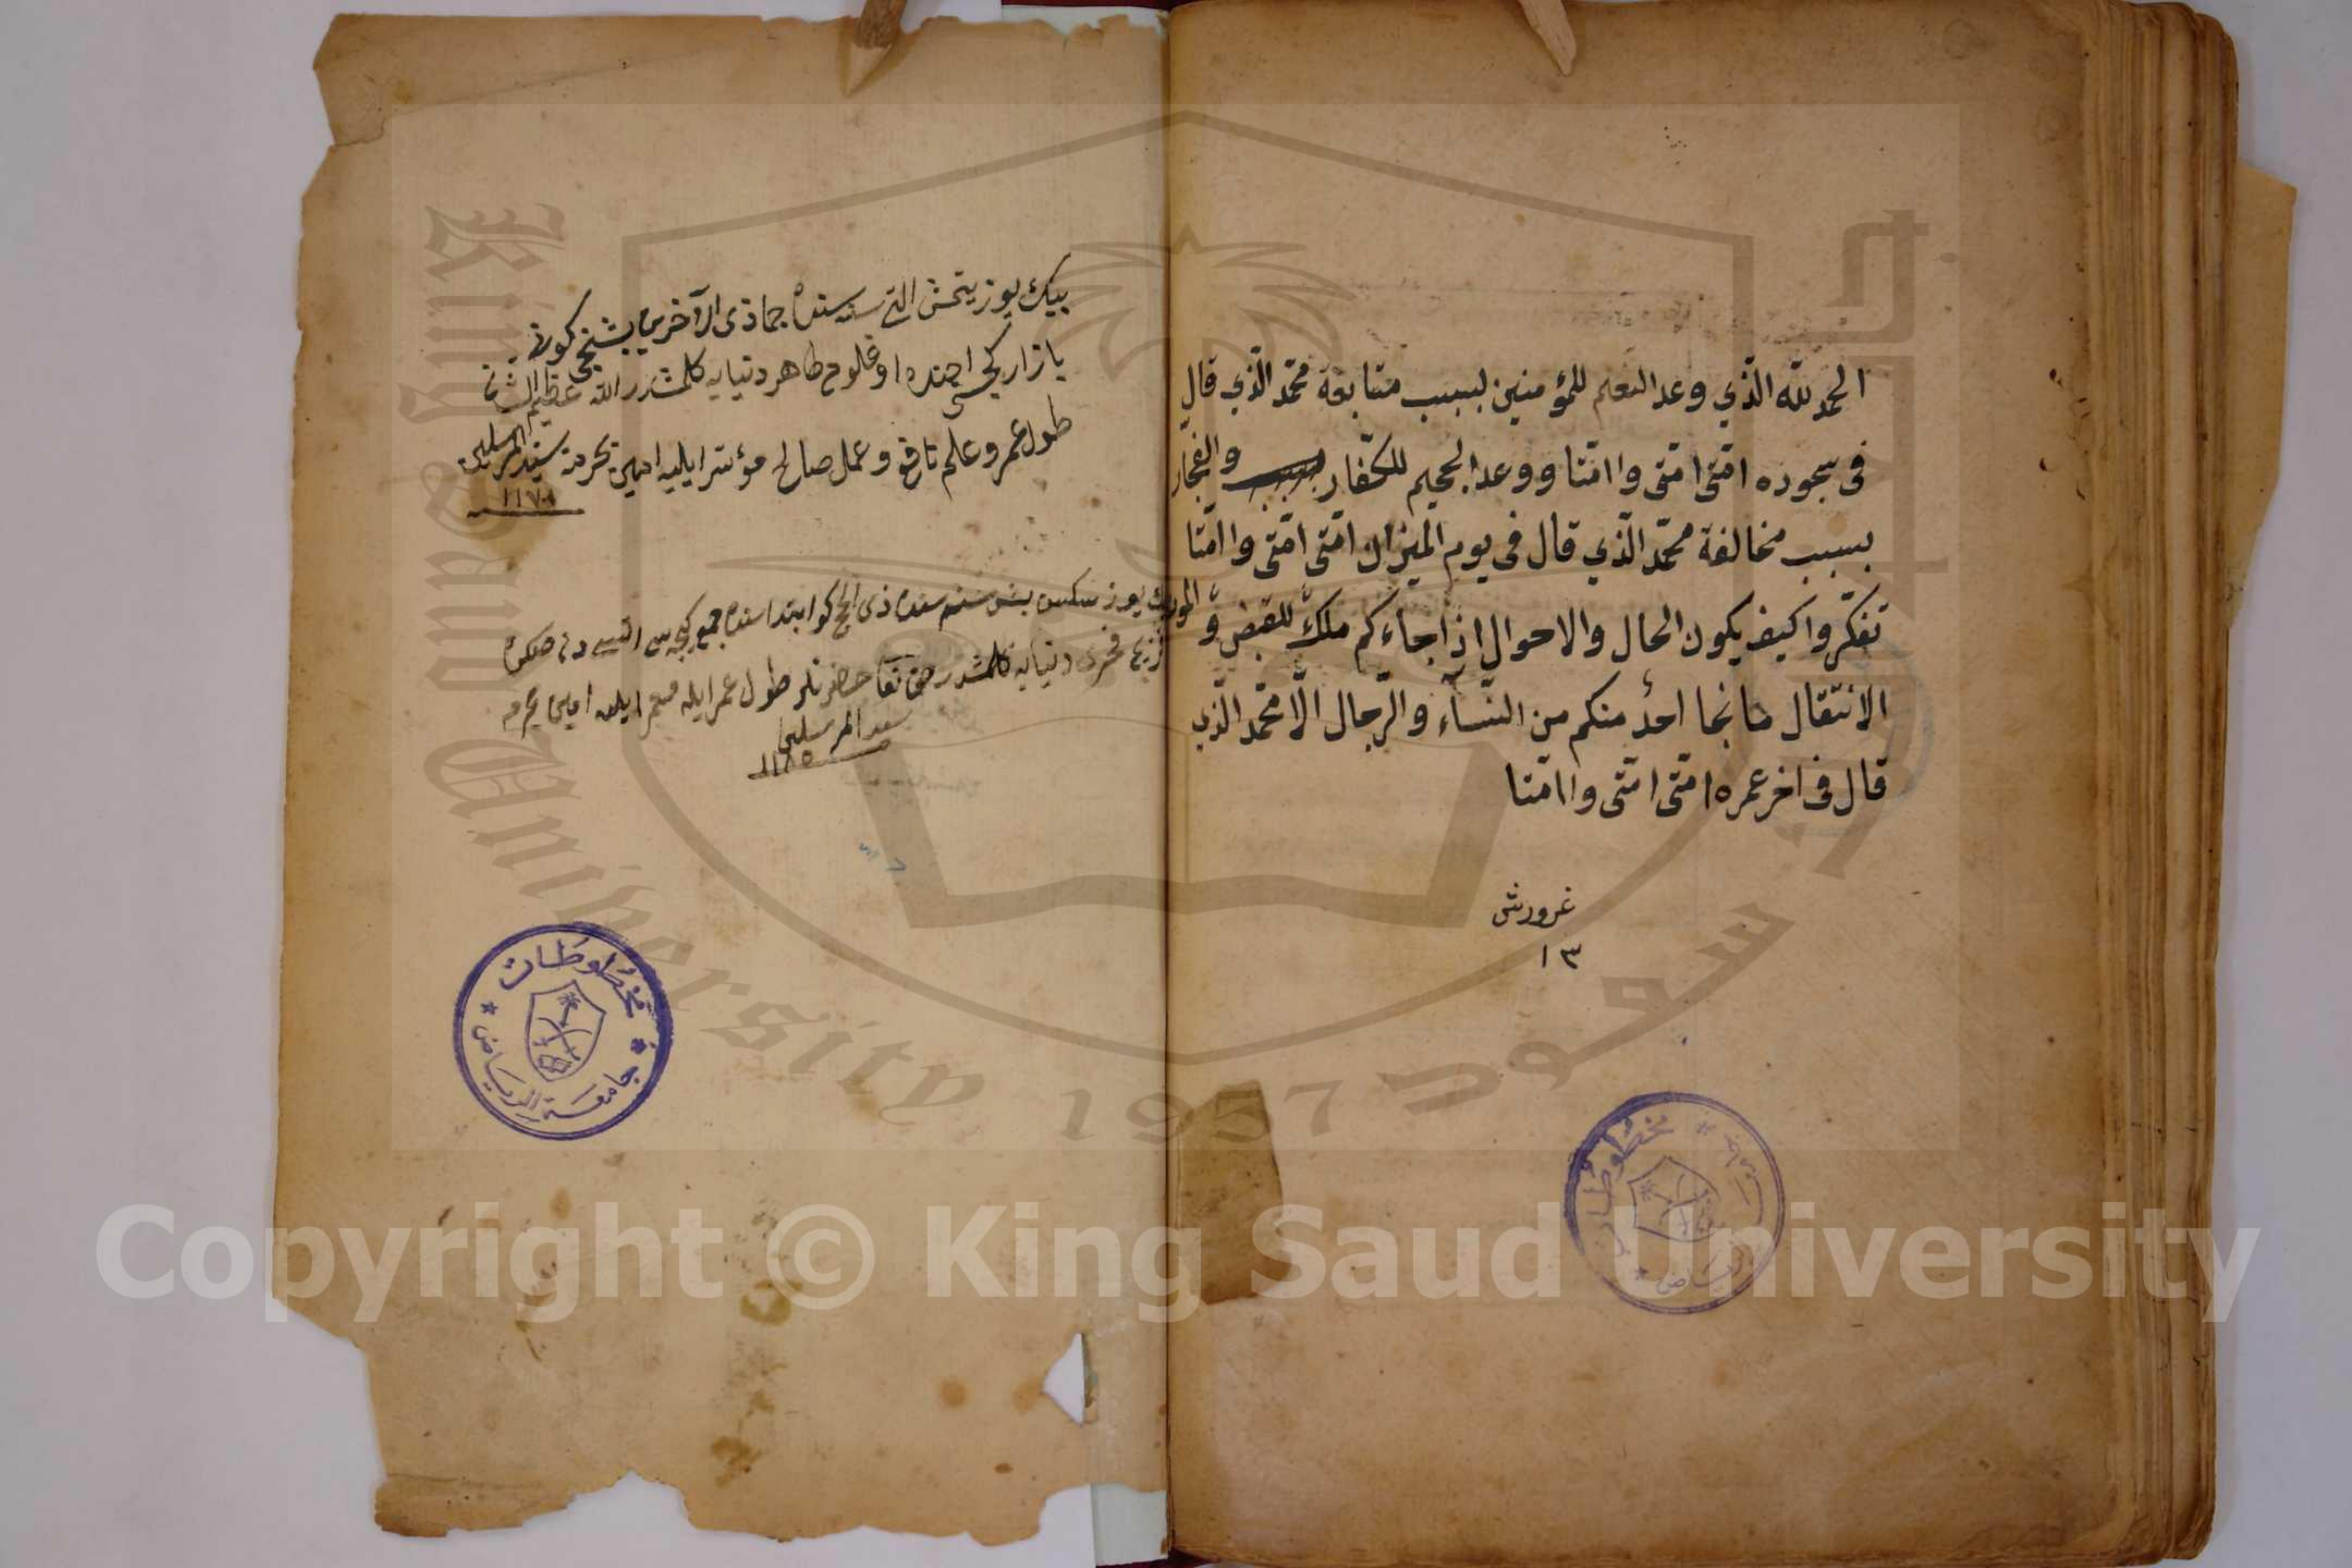 الحمد لله الّذي وعد النعيم للمؤمنين لسبب متابعة محمّد الّذي قال
فى سجوده امّتى امّتى وا امّتا ووعد الجحيم للكفّار والفجار
بسبب مخالفة محمّد الّذي قال فى يوم الميزان امّتى امّتى وا امّتا
تفكّروا كيف يكون الحال والاحوال اذا جاءكم ملكٌ للقبض و
الانتقال ما نجا احدٌ منكم من النّسآء والرّجال الّا محمّد الّذي
قال فى اخر عمره امّتى امّتى وا امّتا
غروش
١٣
مخطوطات
بيك يوز يتمش التى سنه سنده جماذى الآخرين بشنجى كونى
يازار كيجسى ايچنده اوغلوم طاهر دنيايه كلمشدر الله عظيم الشان
طول عمر وعلم نافع وعمل صالح ميسر ايليه امين بحرمة سيد المرسلين
١١٧٦
يوز سكسن بش سنه سنده ذى الحج ابتداسنده جمع كيجه سى
دنيايه كلمشدر حق تعا حضرتلر طول عمر ايله معمر ايليه امين بحرمه
سيد المرسلين
١١٨٥
مخطوطات
جامعة الرياض
King Saud University
1957
سعود
Copyright © King Saud University